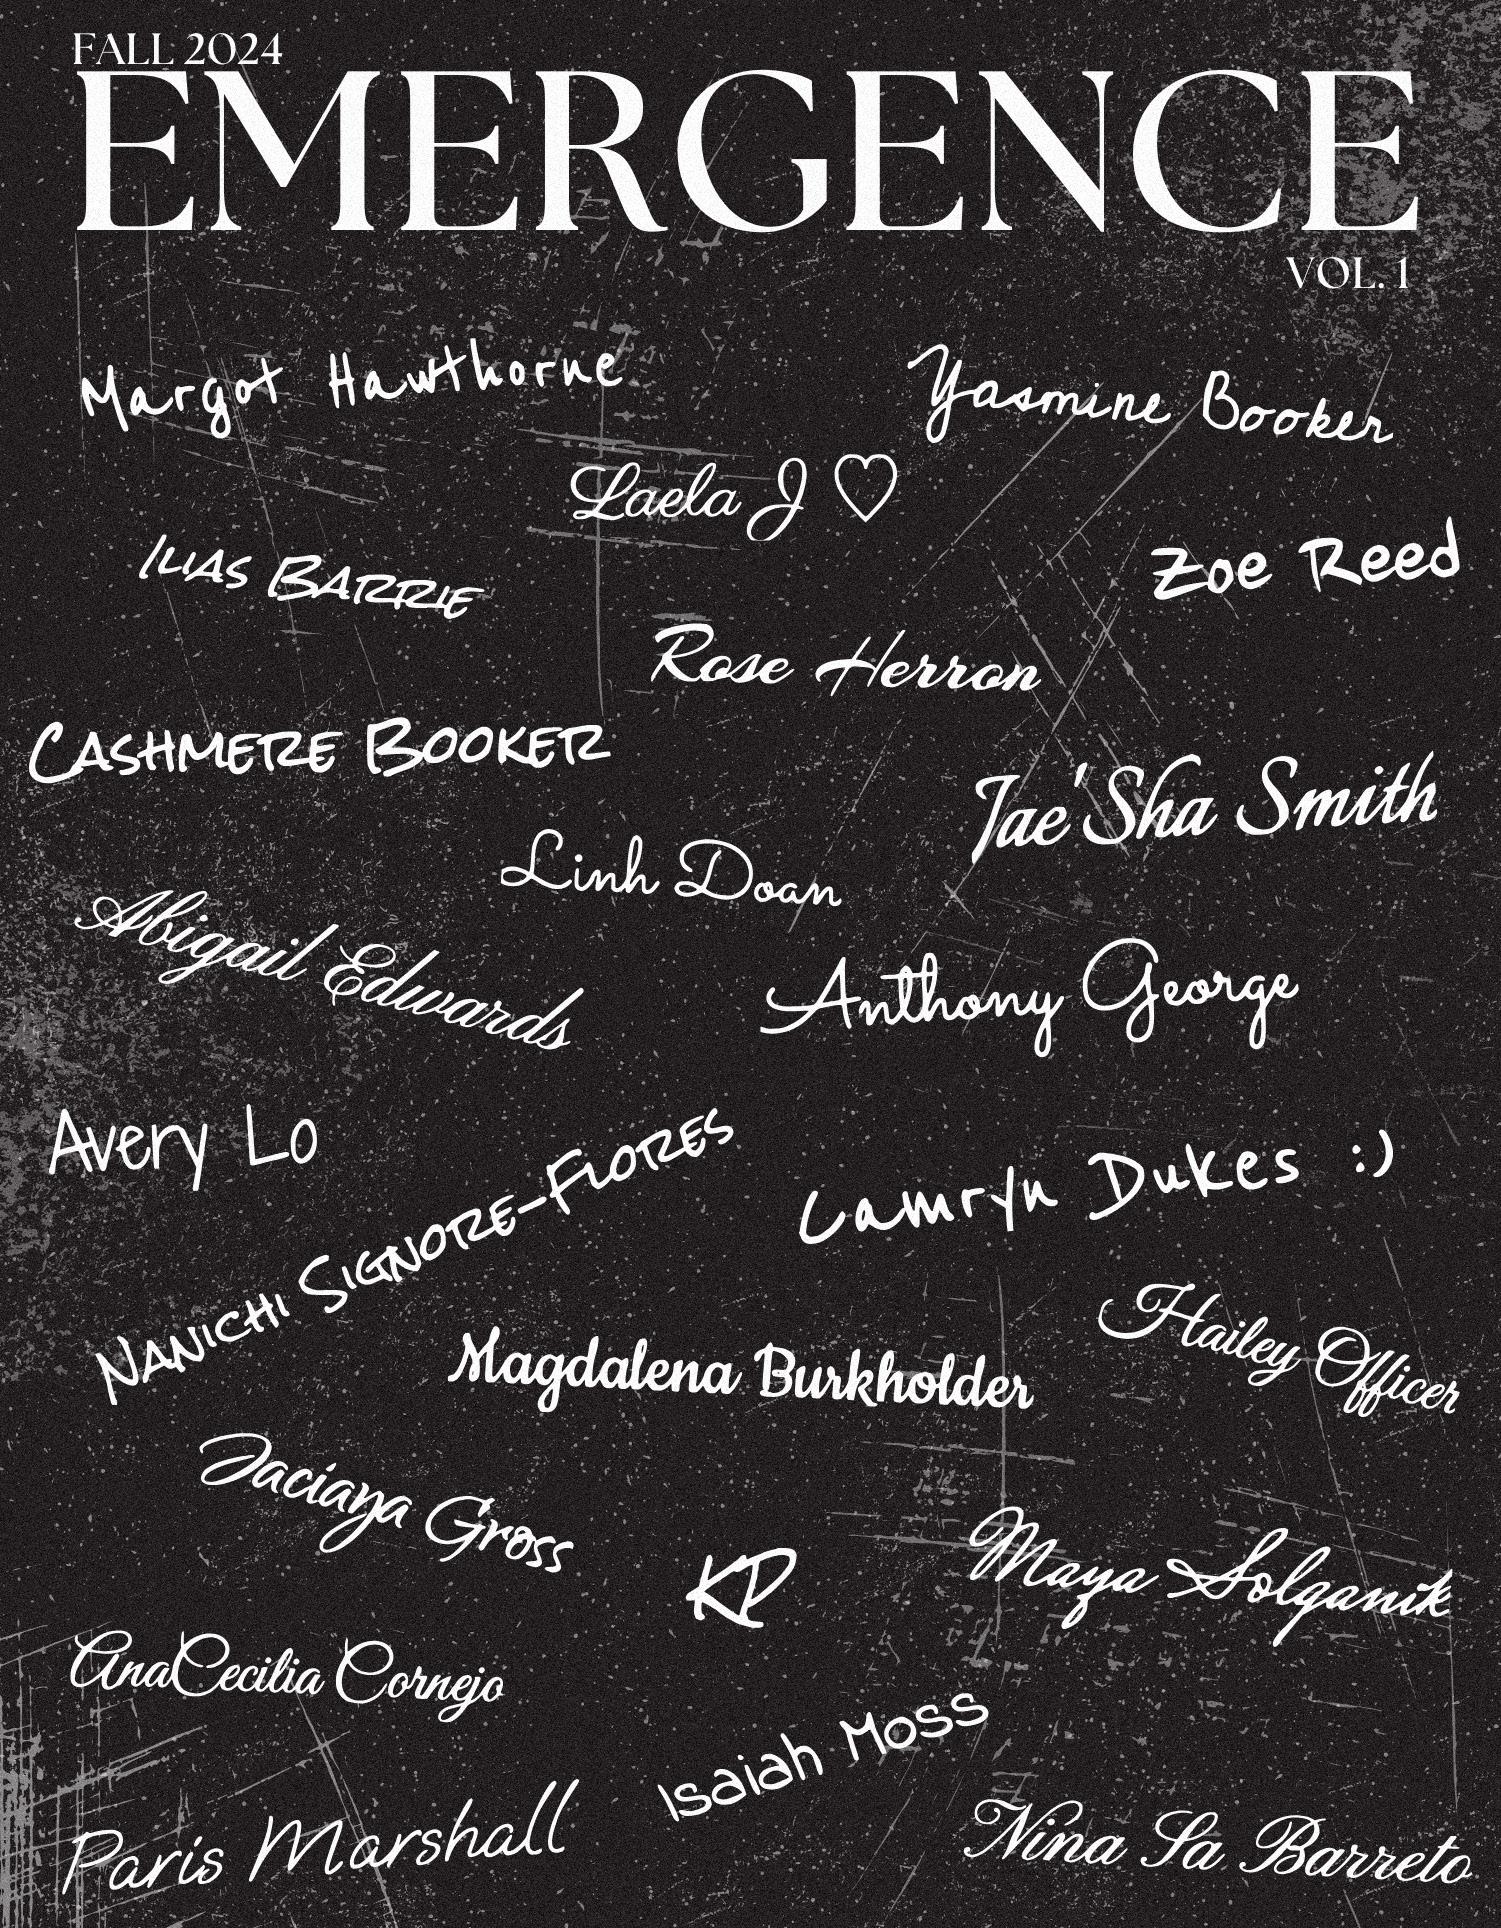 FALL 2024
EMERGENCE
VOL. 1
Margot Hawthorne
Yasmine Booker
Laela J ♡
Ilias Barrie
Zoe Reed
Rose Herron
Cashmere Booker
Jae'Sha Smith
Linh Doan
Abigail Edwards
Anthony George
Avery Lo
Nanichi Signore-Flores
Camryn Dukes :)
Hailey Officer
Magdalena Burkholder
Jaciaya Gross
KP
Maya Solganik
AnaCecilia Cornejo
Isaiah Moss
Paris Marshall
Nina Sa Barreto